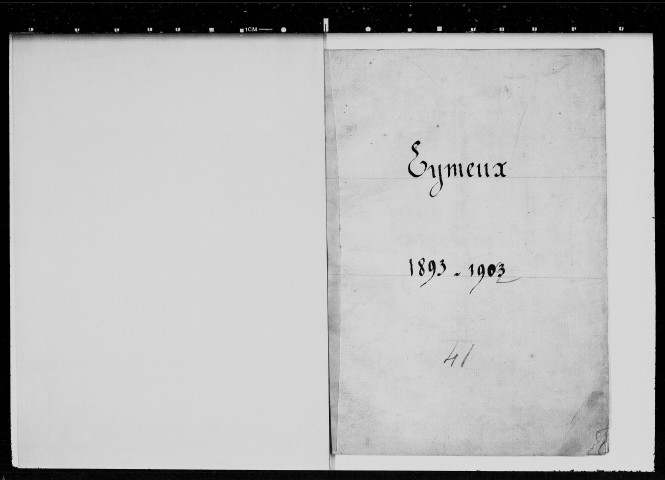 1CM
Eymeux
1893 - 1903
41